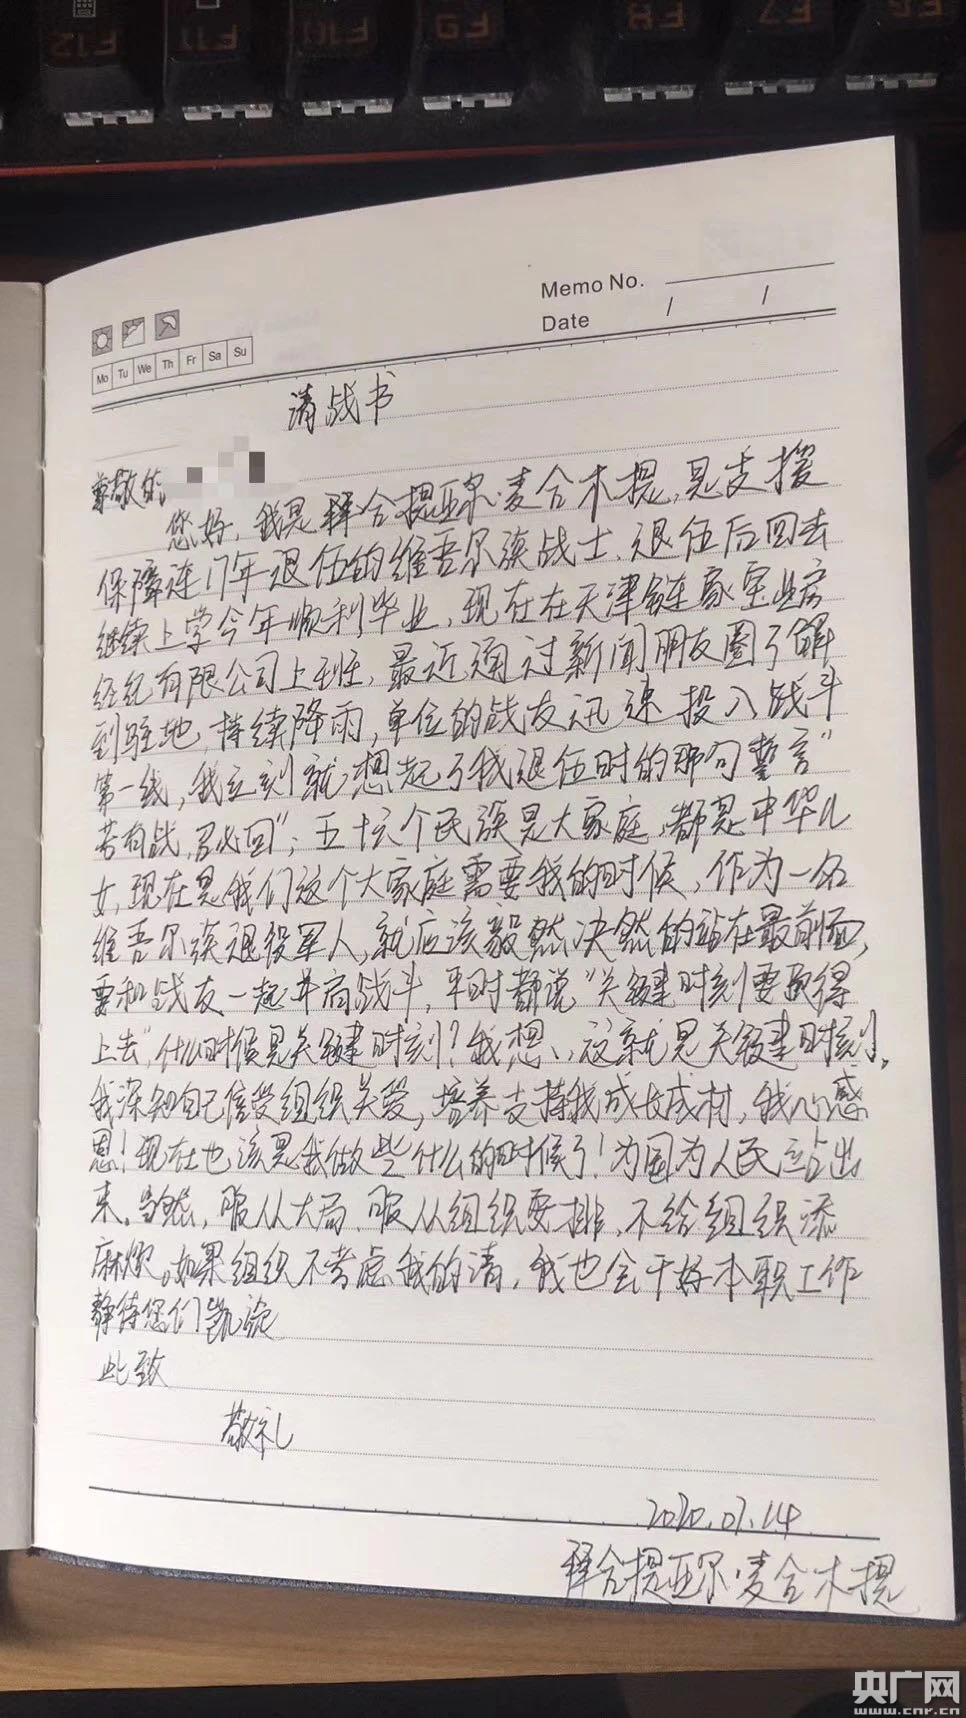 F12 F11 F10 F9 F8 F7 F6
Memo No.
Date / /
Mo Tu We Th Fr Sa Su
请战书
尊敬的
您好，我是拜合提亚尔·麦合木提，是支援
保障连17年退伍的维吾尔族战士、退伍后回去
继续上学今年顺利毕业，现在在天津链家宝业房
经纪有限公司上班，最近通过新闻朋友圈了解
到驻地，持续降雨，单位的战友迅速投入战斗
第一线，我立刻就想起了我退伍时的那句誓言“
若有战，召必回”；五十六个民族是大家庭，都是中华儿
女，现在是我们这个大家庭需要我的时候，作为一名
维吾尔族退役军人，就应该毅然决然的站在最前面，
要和战友一起并肩战斗，平时都说“关键时刻要顶得
上去”，什么时候是关键时刻？我想、这就是关键时刻。
我深知自己倍受组织关爱，培养支持我成长成材，我心感
恩！现在也该是我做些什么的时候了！为国为人民站出
来。当然，服从大局、服从组织安排，不给组织添
麻烦。如果组织不考虑我的请，我也会干好本职工作
静待您们凯旋
此致
敬礼
2020.07.14
拜合提亚尔·麦合木提
央广网
www.cnr.cn